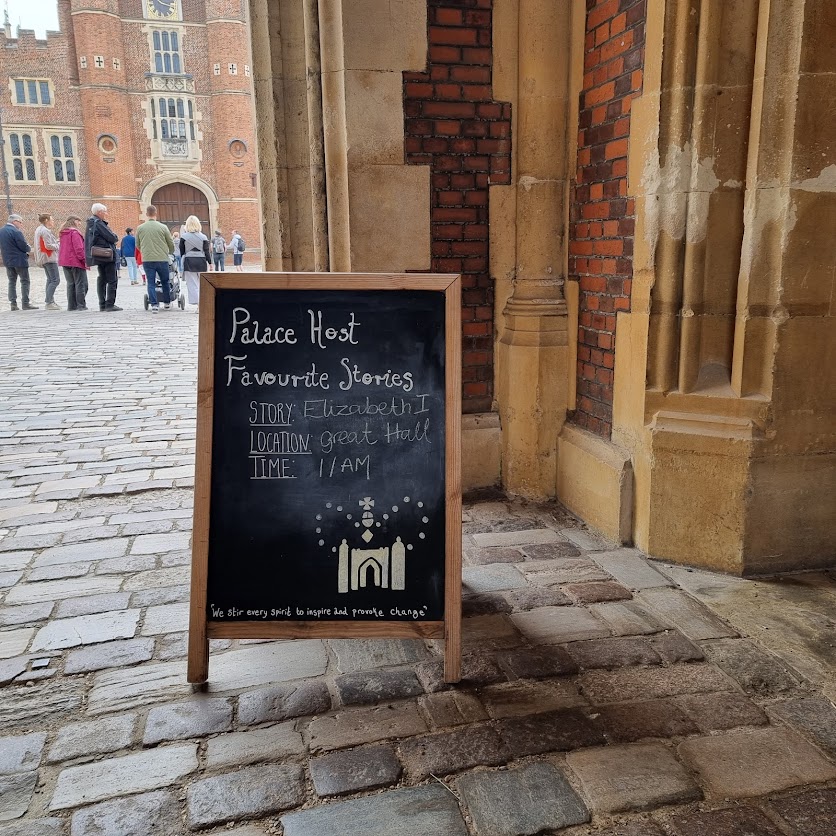 Palace Host
Favourite Stories
STORY: Elizabeth I
LOCATION: great Hall
TIME: 11AM
"We stir every spirit to inspire and provoke change"